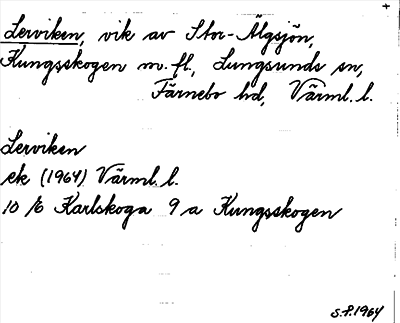 Lerviken, vik av Stor-Älgsjön,
Kungsskogen m. fl., Lungsunds sn,
Färnebo hd, Värml. l.
Lerviken
ek (1964) Värml. l.
10 /6 Karlskoga 9 a Kungsskogen
S.P. 1964